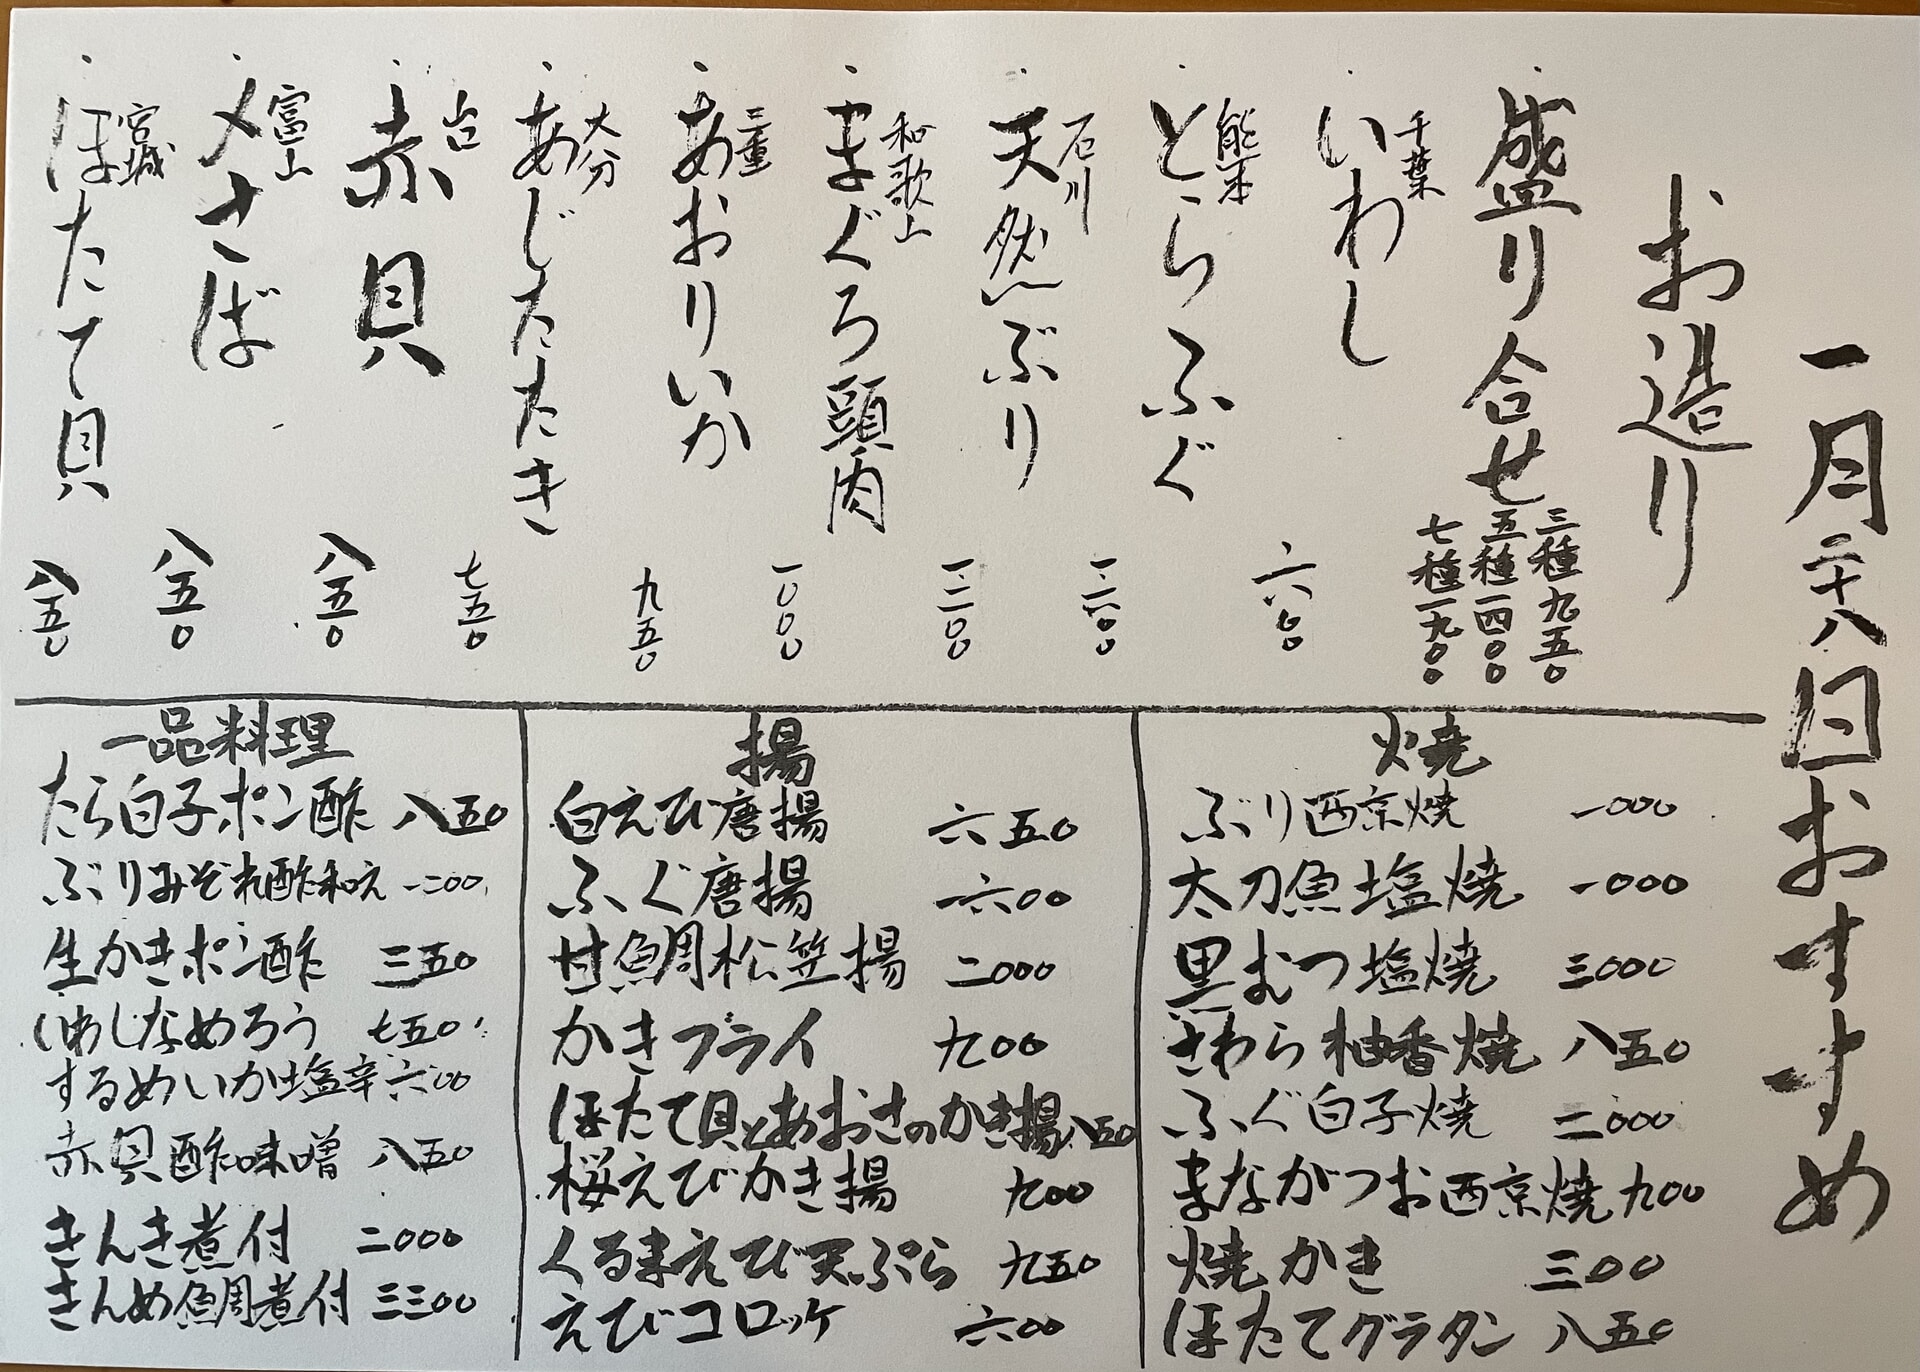 一月二十八日おすすめ
お造り
盛り合せ
三種九五〇
五種一四〇〇
七種一九〇〇
千葉
いわし
六〇〇
熊本
とらふぐ
一二六〇〇
石川
天然ぶり
一二〇〇
和歌山
まぐろ頭肉
一〇〇〇
三重
あおりいか
九五〇
大分
あじたたき
七五〇
赤貝
八五〇
富山
〆さば
八五〇
宮城
ほたて貝
八五〇
焼
ぶり西京焼 一〇〇〇
太刀魚塩焼 一〇〇〇
黒むつ塩焼 三〇〇〇
さわら柚香焼 八五〇
ふぐ白子焼 二〇〇〇
まながつお西京焼 九〇〇
焼かき 三〇〇
ほたてグラタン 八五〇
揚
白えび唐揚 六五〇
ふぐ唐揚 一六〇〇
甘鯛松笠揚 二〇〇〇
かきフライ 九〇〇
ほたて貝とあおさのかき揚 八五〇
桜えびかき揚 九〇〇
くるまえび天ぷら 九五〇
えびコロッケ 六〇〇
一品料理
たら白子ポン酢 八五〇
ぶりみぞれ酢和え 一二〇〇
生かきポン酢 三五〇
いわしなめろう 七五〇
するめいか塩辛 六〇〇
赤貝酢味噌 八五〇
きんき煮付 二〇〇〇
きんめ鯛煮付 三三〇〇